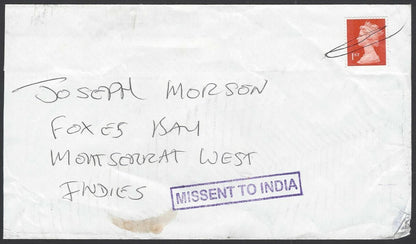 1ST
JOSEPH MORSON
FOXES BAY
MONTSERRAT WEST
INDIES
MISSENT TO INDIA